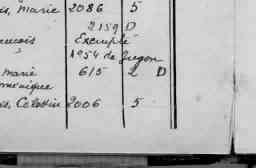 is, Marie 2086 5
2159 D
ancois Exempté
1254 de Gregon
marie 615 2 D
oménique
is, Celestin 2006 5